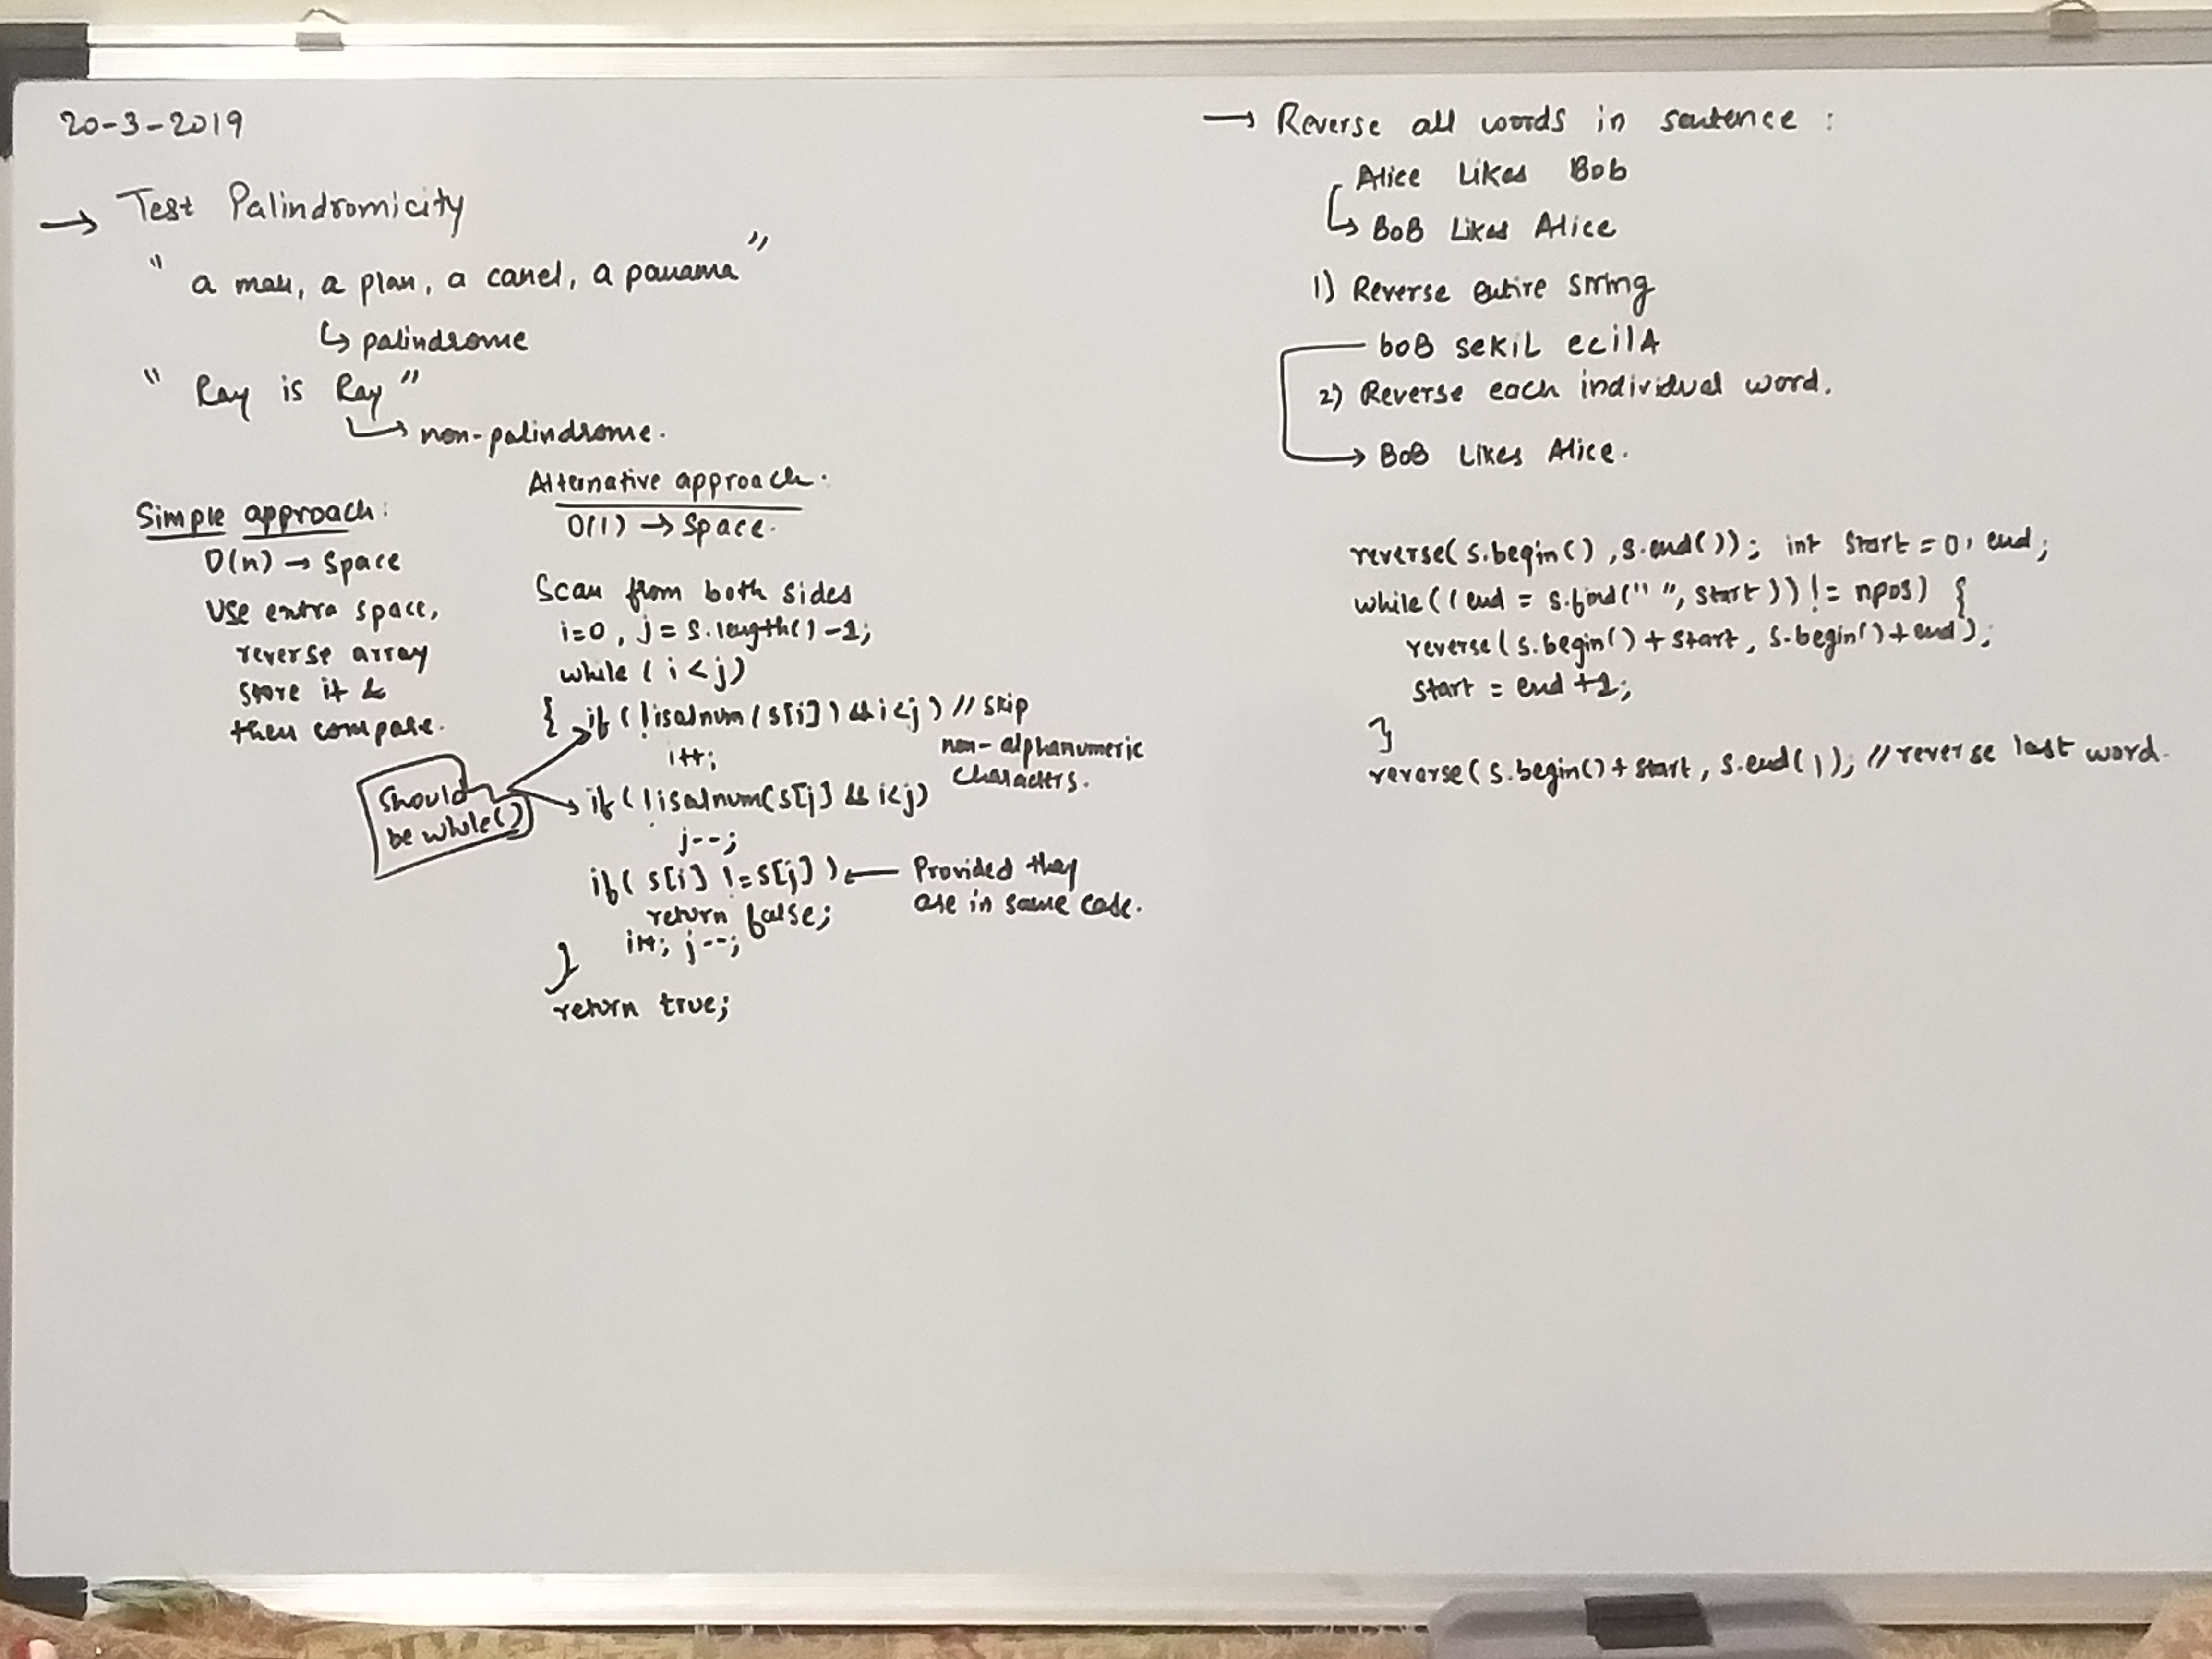 20-3-2019
→ Test Palindromicity
" a man, a plan, a canel, a panama "
↳ palindrome
" Ray is Ray "
↳ non-palindrome.
Simple approach:
O(n) → Space
Use extra space,
reverse array
store it &
then compare.
Alternative approach.
O(1) → Space.
Scan from both sides
i=0, j = s.length()-1;
while ( i < j)
{ if ( !isalnum(s[i]) && i<j ) // skip
non-alphanumeric
characters.
i++;
if ( !isalnum(s[j] && i<j)
j--;
should
be while()
if( s[i] != s[j] ) ← Provided they
are in same case.
return false;
i++; j--;
}
return true;
→ Reverse all words in sentence :
Alice Likes Bob
↳ BoB Likes Alice
1) Reverse entire string
boB sekiL ecilA
2) Reverse each individual word.
→ BoB Likes Alice.
reverse( s.begin() , s.end()); int start = 0, end;
while( ( end = s.find(" ", start )) != npos) {
reverse( s.begin() + start, s.begin() + end );
start = end +1;
}
reverse( s.begin() + start, s.end() ); // reverse last word.